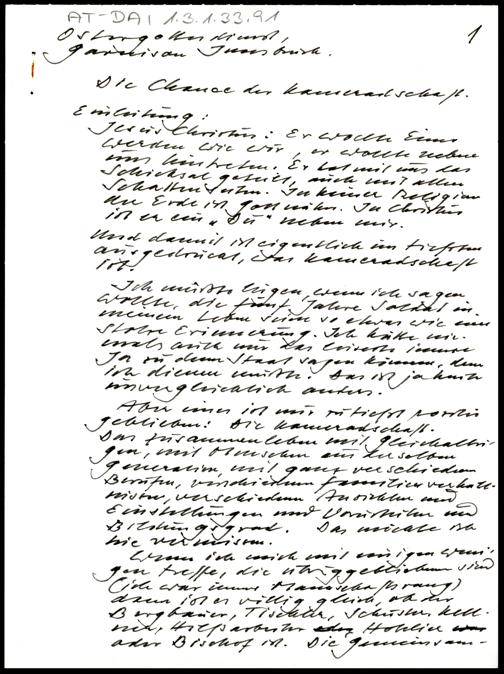 AT-DA | 1.3.1.33.91
1
Ostergottesdienst,
Garnison Innsbruck.
Die Chance der Kameradschaft.
Einleitung:
Jesus Christus: Er wollte Eins
werden wie wir, er wollte neben
uns hintreten. Er hat mit uns das
Schicksal geteilt, auch mit allen
Schattenseiten. In keiner Religion
der Erde ist Gott näher. In Christus
ist er ein „Du“ neben mir.
Und damit ist eigentlich im tiefsten
ausgedrückt, was Kameradschaft
ist.
Ich müßte lügen, wenn ich sagen
wollte, die fünf Jahre Soldat in
meinem Leben seien so etwas wie eine
stolze Erinnerung. Ich hätte nie-
mals auch nur das leiseste innere
Ja zu dem Staat sagen können, dem
ich dienen mußte. Das ist ja heute
unvergleichlich anders.
Aber eines ist mir zutiefst positiv
geblieben: Die Kameradschaft.
Das Zusammenleben mit Gleichaltri-
gen, mit Menschen aus derselben
Generation, mit ganz verschiedenen
Berufen, verschiedenen Familienverhält-
nissen, verschiedenen Ansichten und
Einstellungen und Vorurteilen und
Bildungsgrad. Das möchte ich
nie vermissen.
Wenn ich mich mit einigen weni-
gen treffe, die übriggeblieben sind
(ich war immer Mannschaftsrang)
dann ist es völlig gleich, ob der
Bergbauer, Tischler, Schuster, Kell-
ner, Hilfsarbeiter oder Hotelier
oder Bischof ist. Die Gemeinsam-